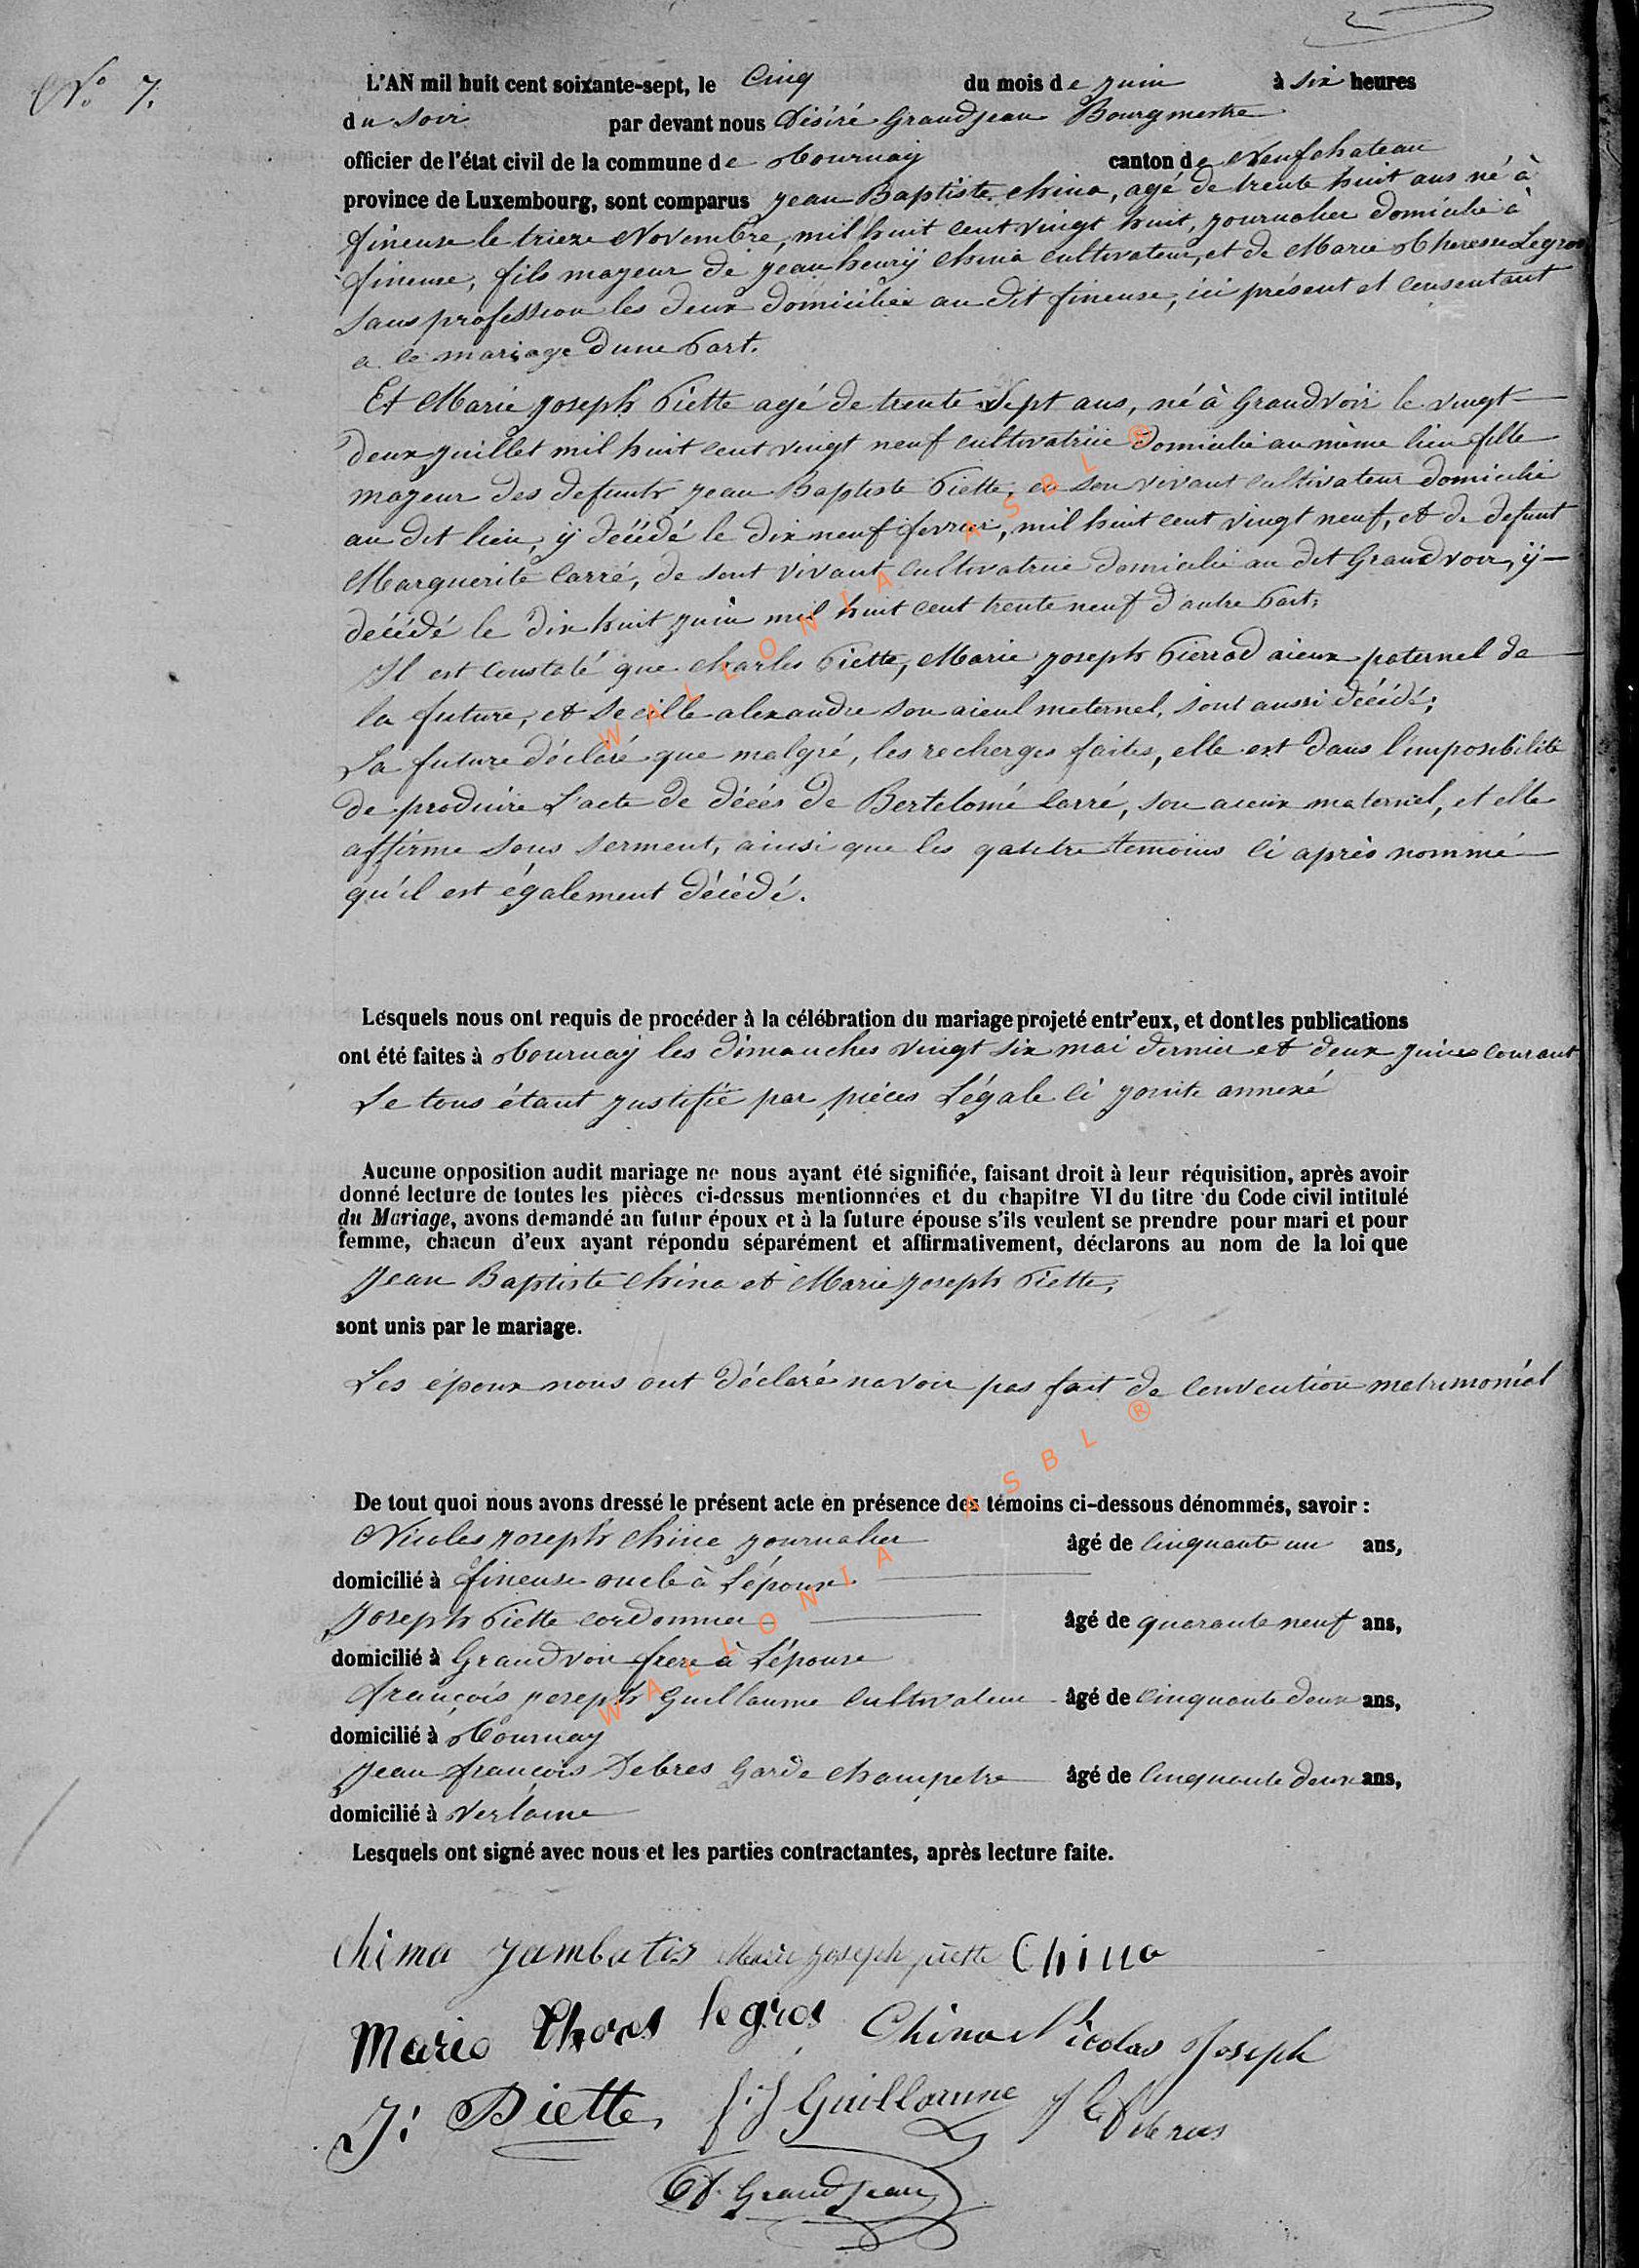 N° 7.
L'AN mil huit cent soixante-sept, le Cinq du mois de juin à six heures
du soir par devant nous Désiré Grandjean Bourgmestre
officier de l'état civil de la commune de Tournay canton de Neufchateau
province de Luxembourg, sont comparus Jean Baptiste China, agé de trente huit ans né à
fineuse le trieze Novembre, mil huit cent vingt huit, journalier domicilié à
fineuse, fils majeur de jean henrÿ China cultivateur, et de Marie Therese Legros
sans profession les deux domiciliés au dit fineuse, ici présent et consentant
a ce mariage d'une Part.
Et Marie Joseph Piette agé de trente Sept ans, né à Grandvoir le vingt
deux juillet mil huit cent vingt neuf cultivatrice domicilié au même lieu fille
majeur des defunts Jean Baptiste Piette, en son vivant cultivateur domicilié
au dit lieu, ÿ décédé le dix neuf fevrier, mil huit cent vingt neuf, et de defunt
Marguerite Carré, de sont vivant cultivatrice domicilié au dit Grandvoir, ÿ
décédé le dix huit juin mil huit cent trente neuf d'autre Part;
Il est constaté que Charles Piette, Marie Joseph Pierrad aieux paternel de
la future, et Secille alexandre son aieul meternel, sont aussi décédé;
La future déclaré que malgré, les recherges faites, elle est dans l'imposibilité
de produire L'acte de décés de Bertelomé Carré, son aieux maternel, et elle
affirme sous serment, ainsi que les quatre temoins ci après nommé
qu'il est également décédé.
Lesquels nous ont requis de procéder à la célébration du mariage projeté entr'eux, et dont les publications
ont été faites à Tournay les dimanches vingt six mai dernier et deux juin courant
Le tous étant justifié par piéces Légale ci jointe annexé
Aucune opposition audit mariage ne nous ayant été signifiée, faisant droit à leur réquisition, après avoir
donné lecture de toutes les pièces ci-dessus mentionnées et du chapitre VI du titre du Code civil intitulé
du Mariage, avons demandé au futur époux et à la future épouse s'ils veulent se prendre pour mari et pour
femme, chacun d'eux ayant répondu séparément et affirmativement, déclarons au nom de la loi que
Jean Baptiste China et Marie Joseph Piette,
sont unis par le mariage.
Les époux nous ont déclaré navoir pas fait de convention matrimonial
De tout quoi nous avons dressé le présent acte en présence des témoins ci-dessous dénommés, savoir :
Nicolas Joseph China journalier âgé de cinquante un ans,
domicilié à fineuse oncle à L'époux
Joseph Piette cordonnier âgé de quarante neuf ans,
domicilié à Grandvoir frere à L'épouse
françois joseph Guillaume Cultivateur âgé de cinquante deux ans,
domicilié à Tournay
Jean françois Debres Garde champetre âgé de cinquante deux ans,
domicilié à Verlaine
Lesquels ont signé avec nous et les parties contractantes, après lecture faite.
China Jambatis Marie Joseph piette China
Marie legros China Nicolas Joseph
J: Piette, f:j Guillaume
D. Grandjean
WALLONIA ASBL ®
WALLONIA ASBL ®